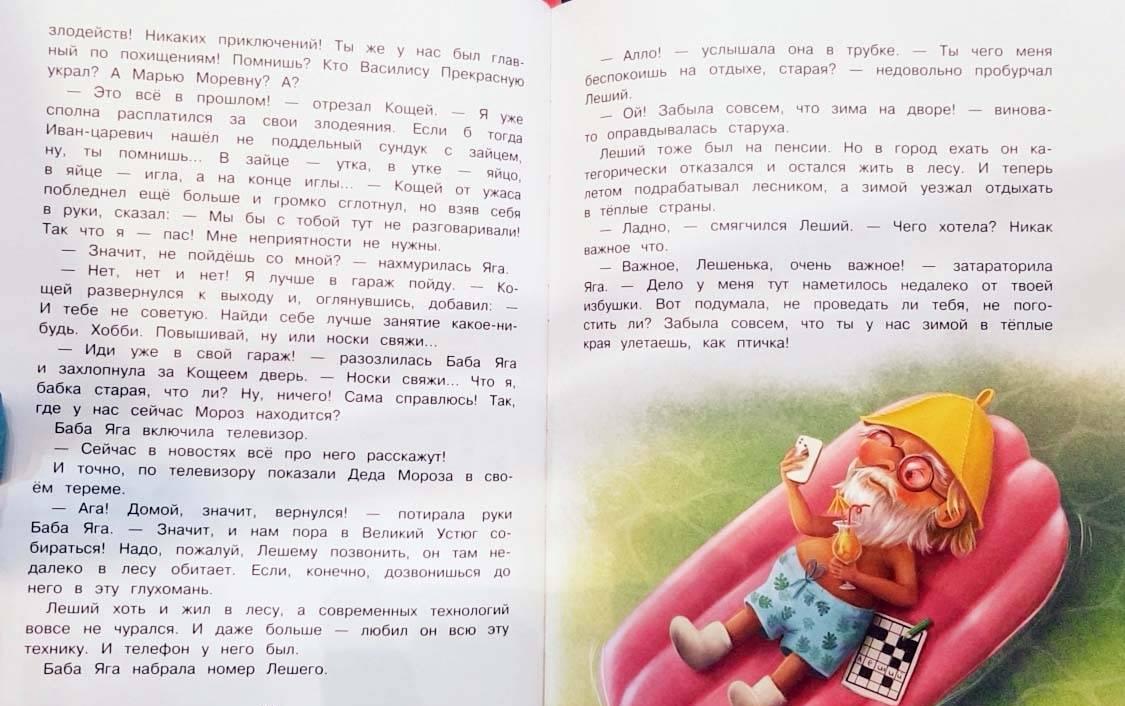 злодейств! Никаких приключений! Ты же у нас был глав-
ный по похищениям! Помнишь? Кто Василису Прекрасную
украл? А Марью Моревну? А?
— Это всё в прошлом! — отрезал Кощей. — Я уже
сполна расплатился за свои злодеяния. Если б тогда
Иван-царевич нашёл не поддельный сундук с зайцем,
ну, ты помнишь... В зайце — утка, в утке — яйцо,
в яйце — игла, а на конце иглы... — Кощей от ужаса
побледнел ещё больше и громко сглотнул, но взяв себя
в руки, сказал: — Мы бы с тобой тут не разговаривали!
Так что я — пас! Мне неприятности не нужны.
— Значит, не пойдёшь со мной? — нахмурилась Яга.
— Нет, нет и нет! Я лучше в гараж пойду. — Ко-
щей развернулся к выходу и, оглянувшись, добавил: —
И тебе не советую. Найди себе лучше занятие какое-ни-
будь. Хобби. Повышивай, ну или носки свяжи...
— Иди уже в свой гараж! — разозлилась Баба Яга
и захлопнула за Кощеем дверь. — Носки свяжи... Что я,
бабка старая, что ли? Ну, ничего! Сама справлюсь! Так,
где у нас сейчас Мороз находится?
Баба Яга включила телевизор.
— Сейчас в новостях всё про него расскажут!
И точно, по телевизору показали Деда Мороза в сво-
ём тереме.
— Ага! Домой, значит, вернулся! — потирала руки
Баба Яга. — Значит, и нам пора в Великий Устюг со-
бираться! Надо, пожалуй, Лешему позвонить, он там не-
далеко в лесу обитает. Если, конечно, дозвонишься до
него в эту глухомань.
Леший хоть и жил в лесу, а современных технологий
вовсе не чурался. И даже больше — любил он всю эту
технику. И телефон у него был.
Баба Яга набрала номер Лешего.
— Алло! — услышала она в трубке. — Ты чего меня
беспокоишь на отдыхе, старая? — недовольно пробурчал
Леший.
— Ой! Забыла совсем, что зима на дворе! — винова-
то оправдывалась старуха.
Леший тоже был на пенсии. Но в город ехать он ка-
тегорически отказался и остался жить в лесу. И теперь
летом подрабатывал лесником, а зимой уезжал отдыхать
в тёплые страны.
— Ладно, — смягчился Леший. — Чего хотела? Никак
важное что.
— Важное, Лешенька, очень важное! — затараторила
Яга. — Дело у меня тут наметилось недалеко от твоей
избушки. Вот подумала, не проведать ли тебя, не пого-
стить ли? Забыла совсем, что ты у нас зимой в тёплые
края улетаешь, как птичка!